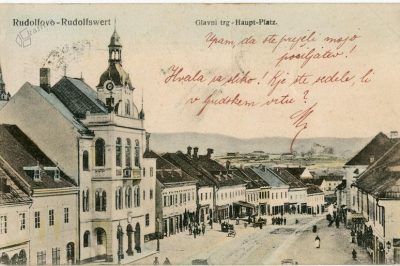 Rudolfovo-Rudolfswert
Glavni trg-Haupt-Platz.
Upam, da ste prejeli mojo
pošiljatev!
Hvala za sliko! Kje ste sedele, li
v ljudskem vrtu?